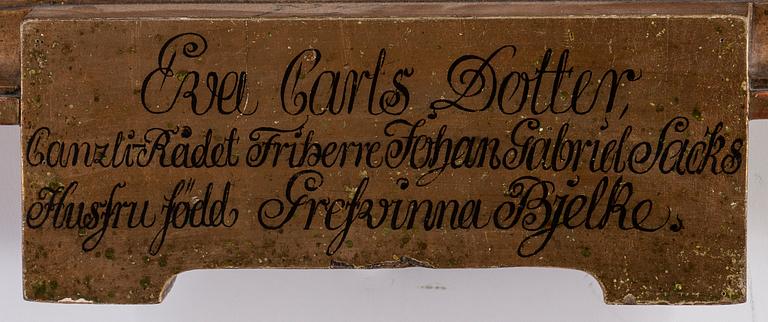 Eva Carls Dotter,
Canzli-Rådet Friherre Johan Gabriel Sacks
Husfru född Grefvinna Bjelke.